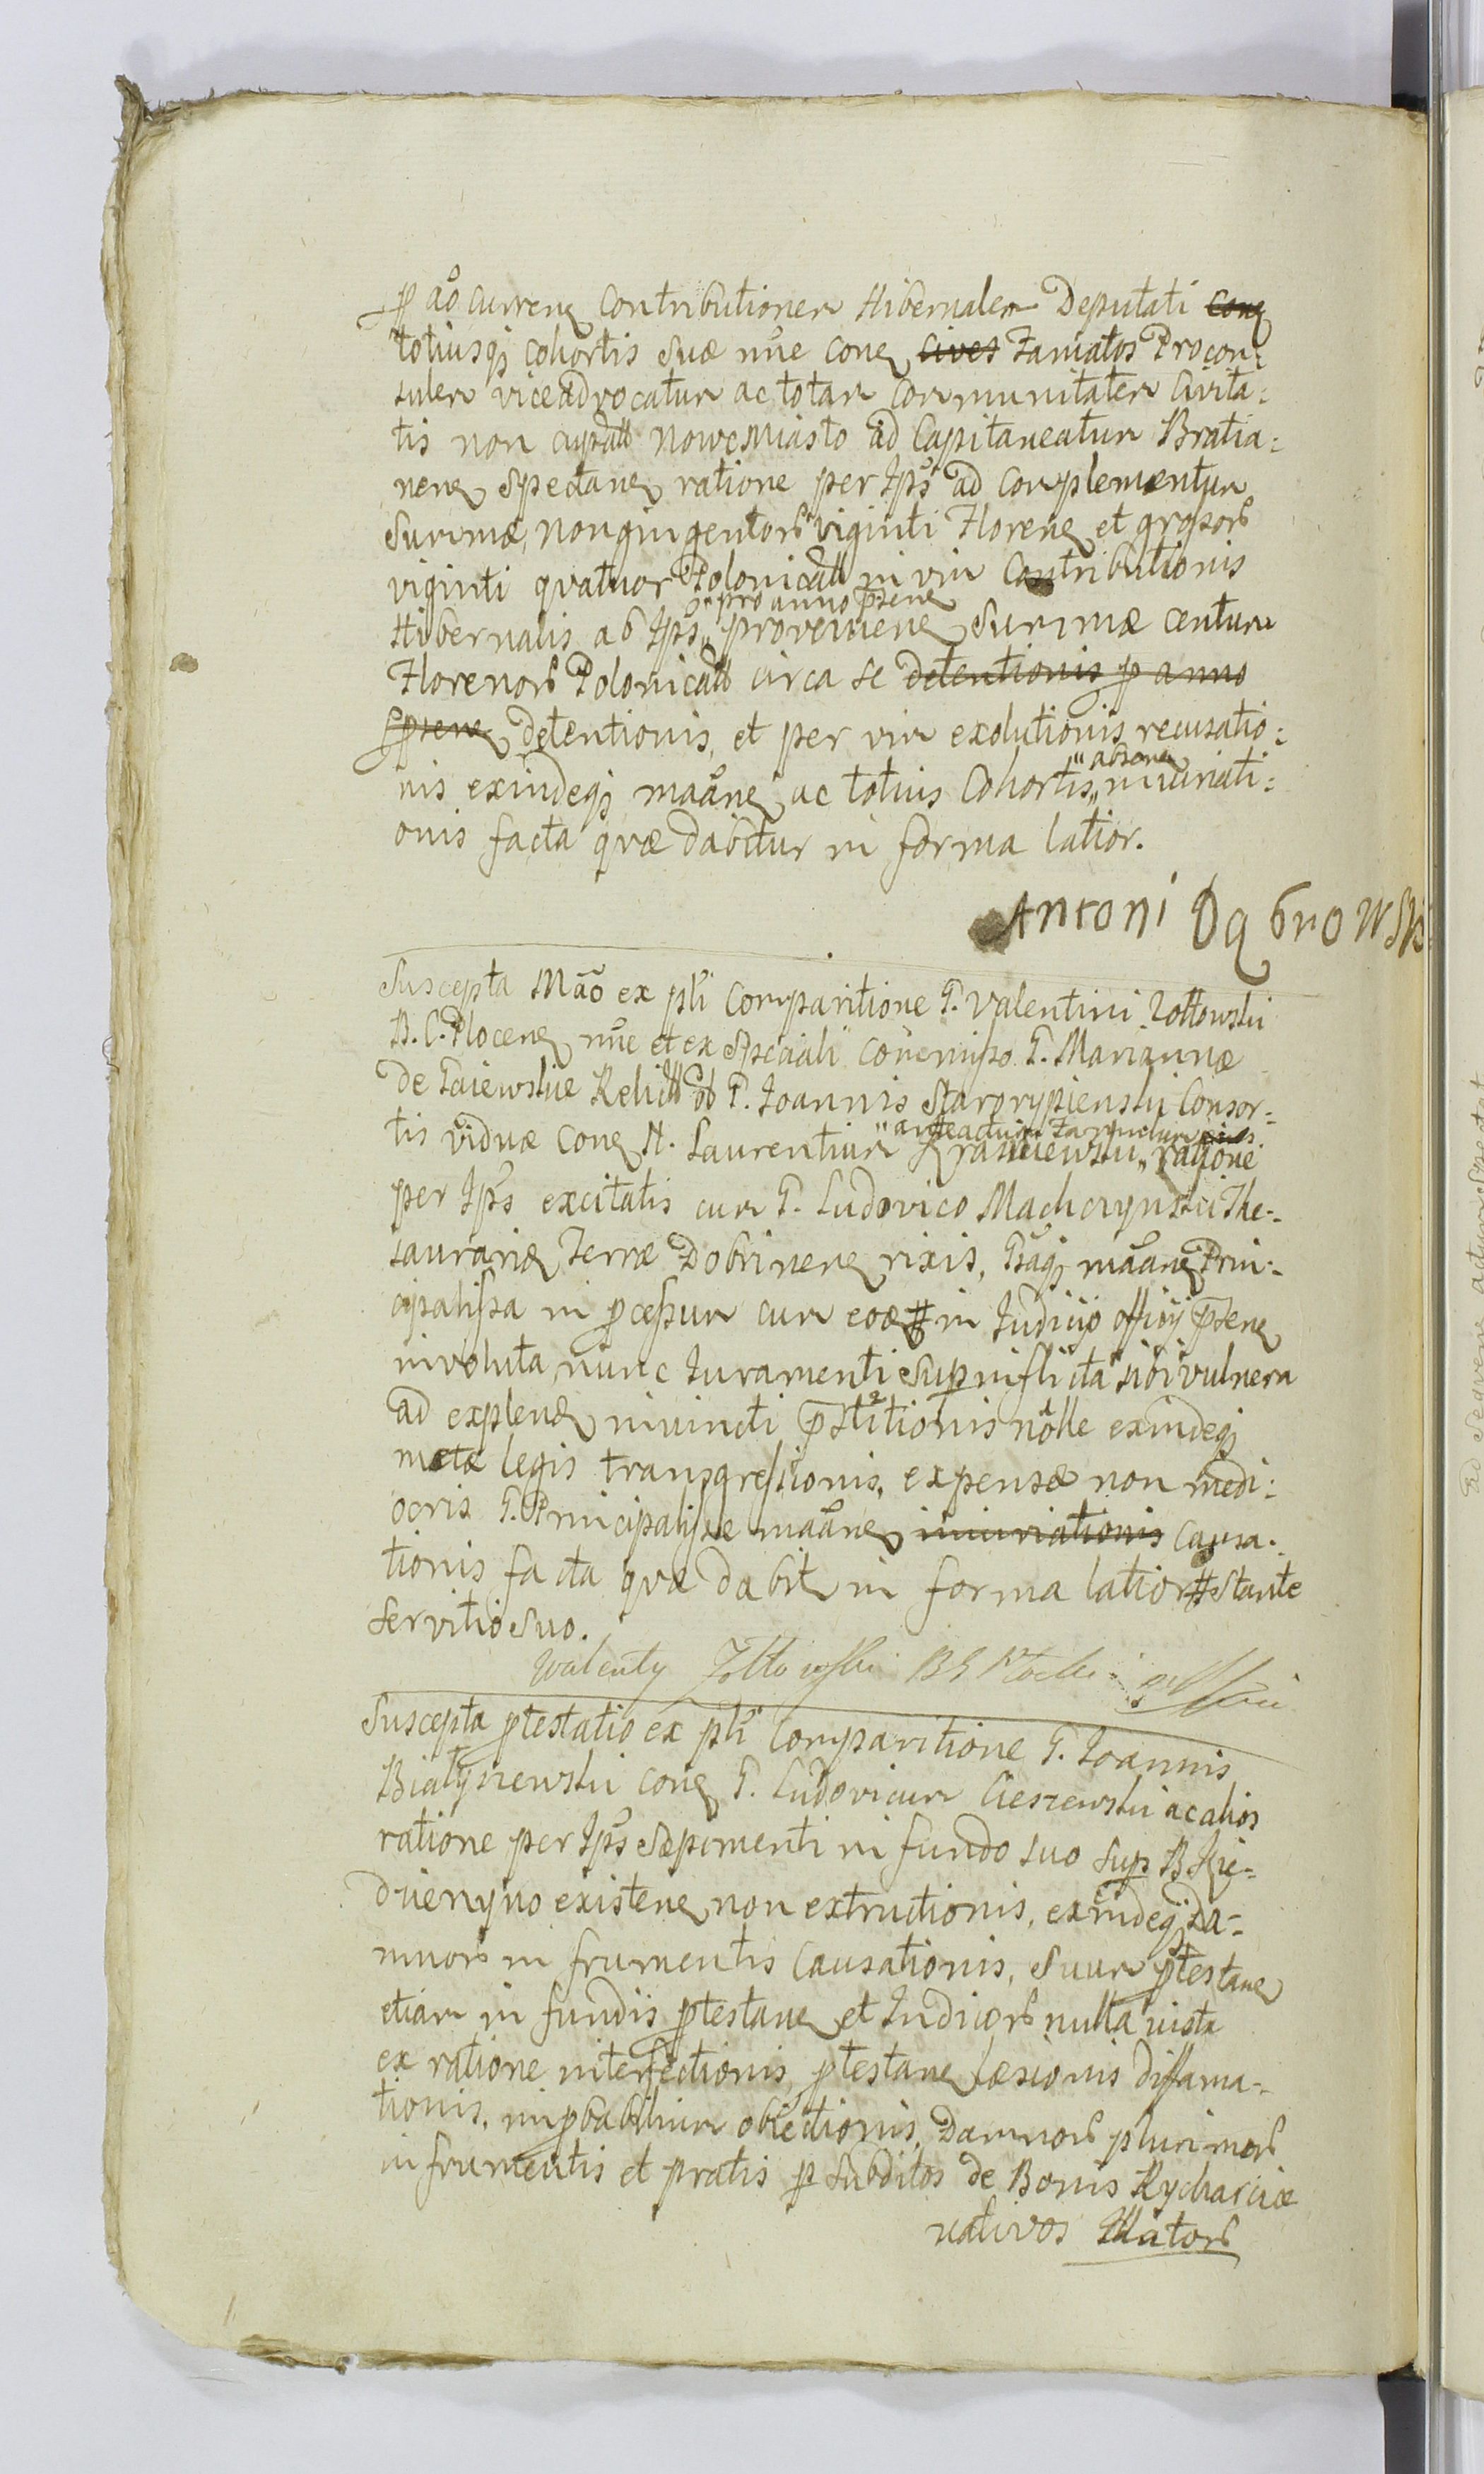 p aõ curren contributionem Hibernalem Deputati con
totiusq cohortis suæ nũc con cives Famatos Procon:
sulem viceadvocatum ac totam communitatem Civita:
tis non cupatt Nowe Miasto ad Capitaneatum Bratia:
nen spectan ratione per Ips̃ ad complementum
summæ, nongingentorb viginti Floren et grosorb
viginti qvatuor Polonicatt in vim Contributionis
"pro anno p̃sen
Hibernalis ab Ips̃" provenien summæ centum
Florenorb Polonicatt circa se detentionis p anno
p̃sen detentionis, et per vim exolutionis recusatio:
"absen
nis exindeq maãn ac totius Cohortis" iniuriati:
onis facta qvæ dabitur in forma latior.
Antoni Dąbrowski
Suscepta Mão ex pli Comparitione G. Valentini Zołtowski
B. C. Plocen nũc et ex speciali Coñemiso G. Mariannæ
De Gaiewskie Relictt ob G. Joannis Starorypienski Consor:
tis viduæ con N. Laurentium " Krasniewski " ratione
per Ips̃ excitatis cum G. Ludovico Machczynski The:
saurario Terræ Dobrinen rixis, Gsaq maãn Prin:
cipalissa in pcessum cum eodē # in Judicijo officij p̃sen
involuta, nunc Juramenti sup inflicta sibi vulnera
ad explen iniuncti p̃stitionis nolle exindeq
metæ legis transgressionis, expensæ non medi:
ocris G. Principalissæ maãn iniuriationis causa:
tionis facta qvæ dabit in forma latior # stante
servitio suo.
Walenty Zołtowski BG Płocki
Suscepta ptestatio ex pli Comparitione G. Joannis
Białyszewski con G. Ludovicum Cieszewski ac alios
ratione per Ips̃ sæpimenti in fundo suo sup B Nie:
dwienyno existen non extructionis, exindeq da:
mnorb in frumentis Causationis, suum ptestan
etiam in fundis ptestan et Indicorb nulla iusta
ex ratione interfectionis, ptestan læsionis diffama:
tionis, impbabilium obiectionis, Damnorb plurimorb
in frumentis et pratis p subditos de Bonis Rycharcice
nativos Illatorb